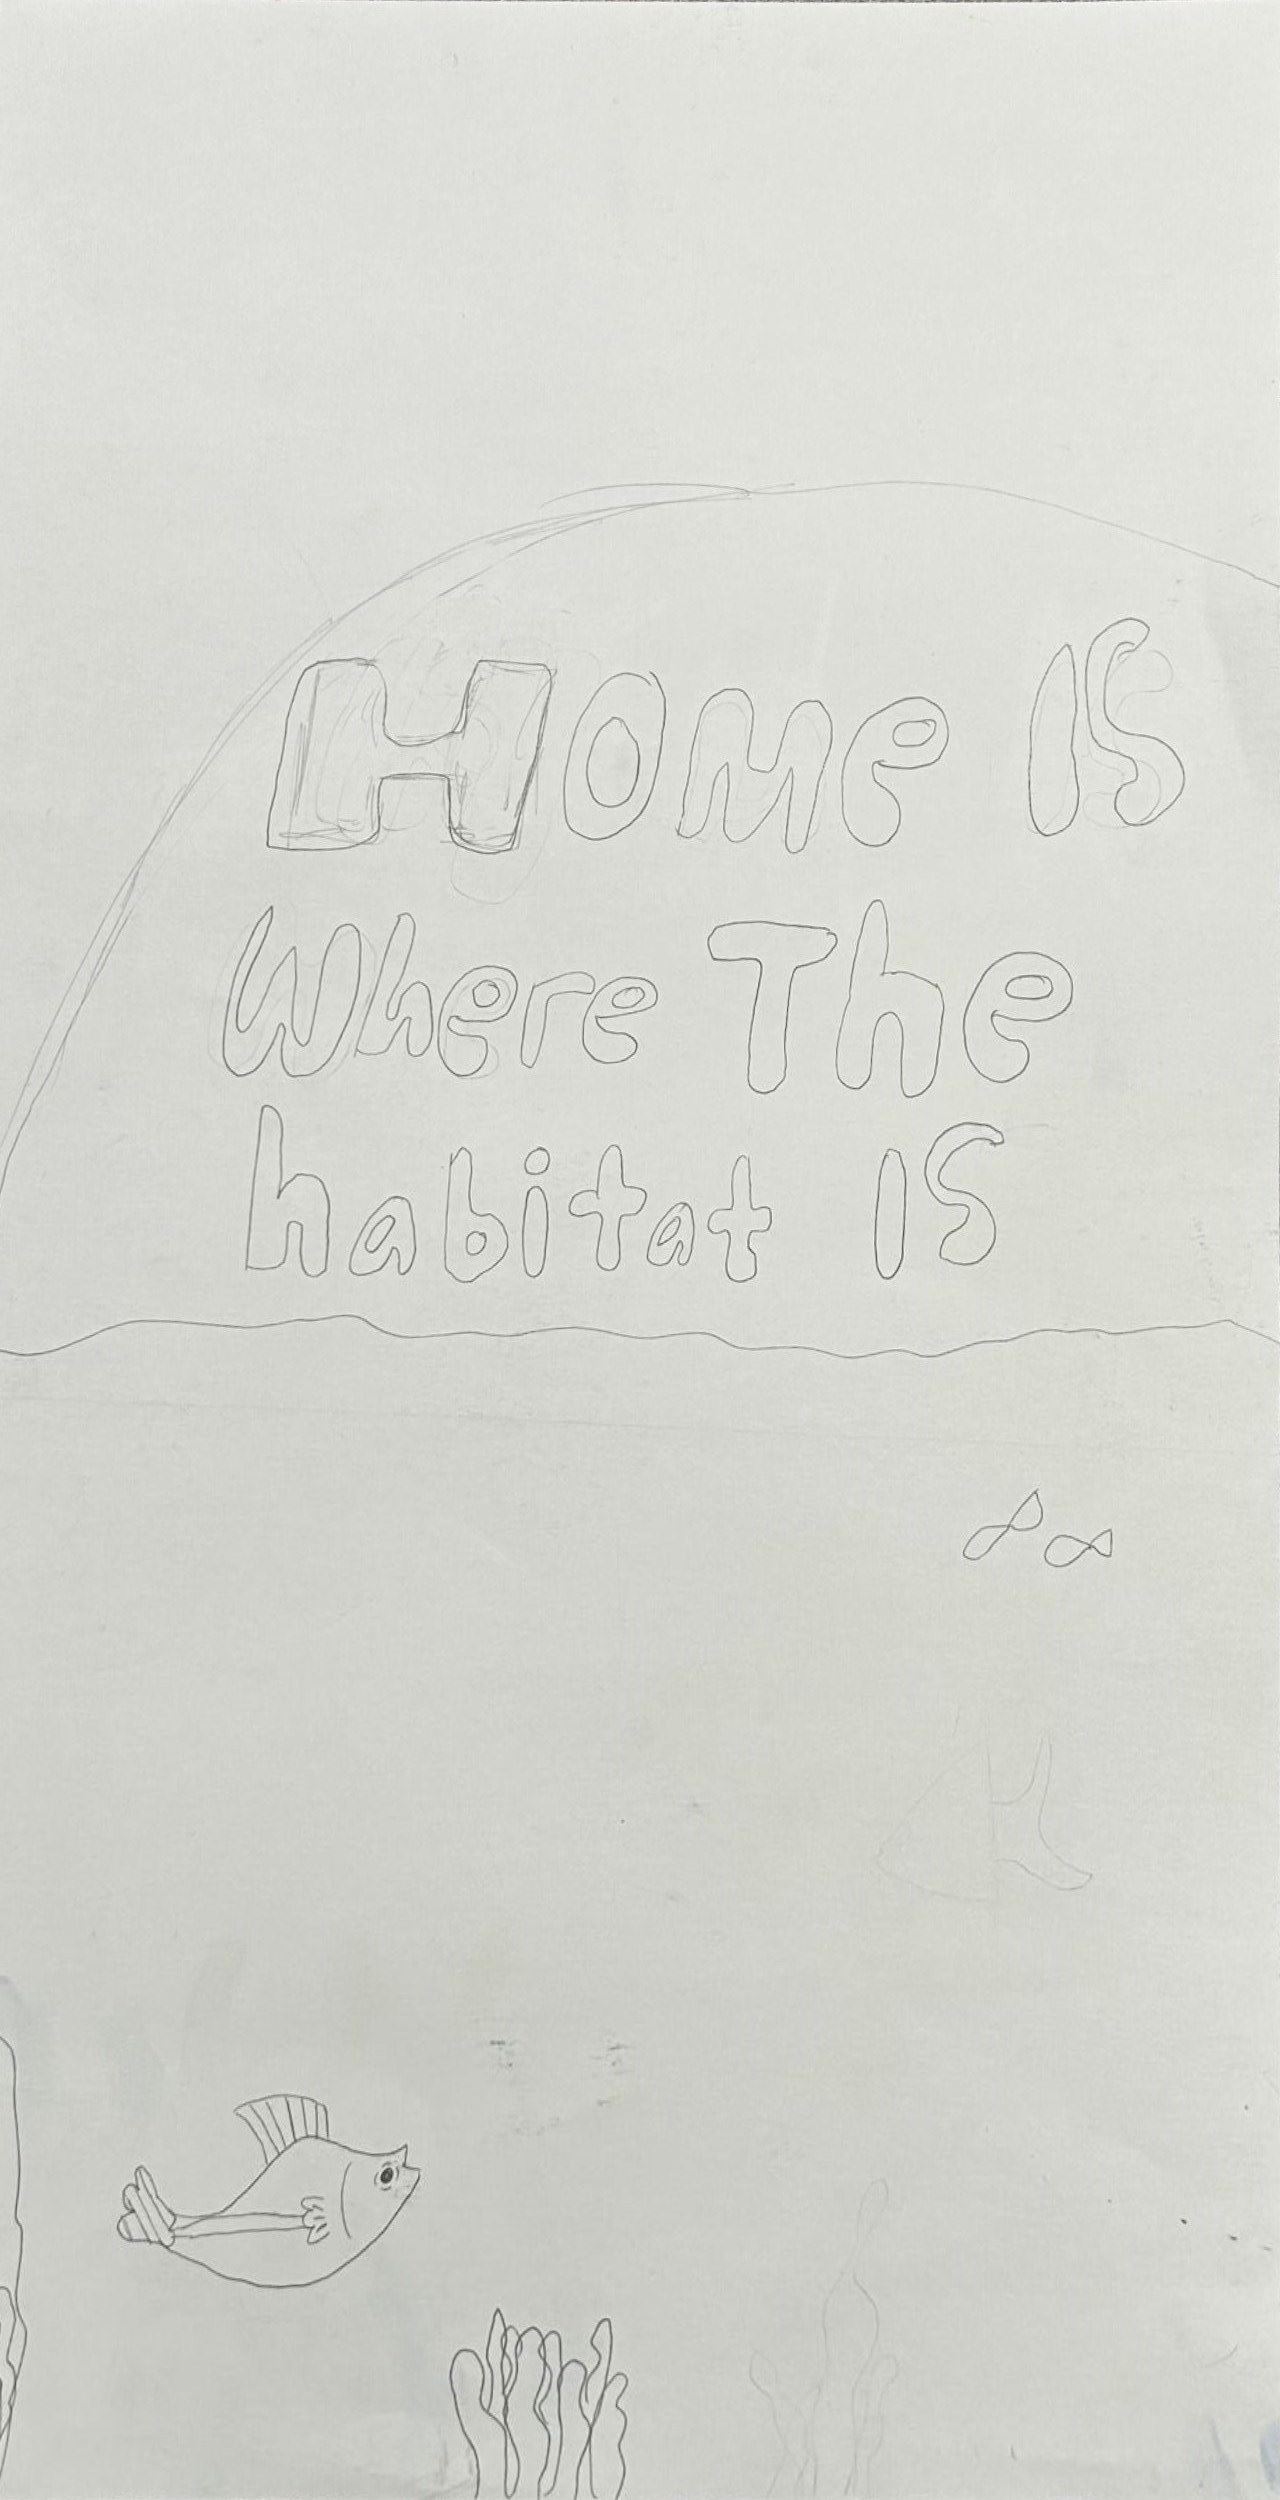 Home IS
Where The
habitat IS